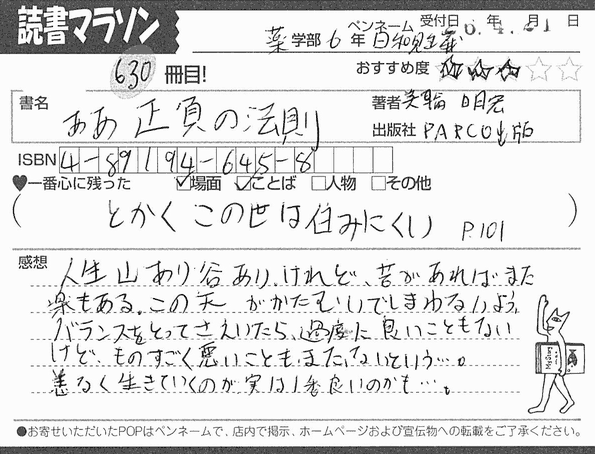 読書マラソン
ペンネーム 受付日 年 月 日
薬学部 6年
630 冊目!
おすすめ度 ★★★☆☆
書名 ああ正負の法則
著者 美輪 明宏
出版社 PARCO出版
ISBN 4-89194-645-8
♥一番心に残った ☑場面 ☑ことば □人物 □その他
(とかくこの世は住みにくい P.101)
感想
人生山あり谷あり。けれど、苦があればまた
楽もある。この天 がかたむいてしまわないよう、
バランスをとってさえいたら、過度に良いこともない
けど、ものすごく悪いことも、また、ないという…。
善なく生きていくのが実は1番良いのかも…。
●お寄せいただいたPOPはペンネームで、店内で掲示、ホームページおよび宣伝物への転載をご了承ください。